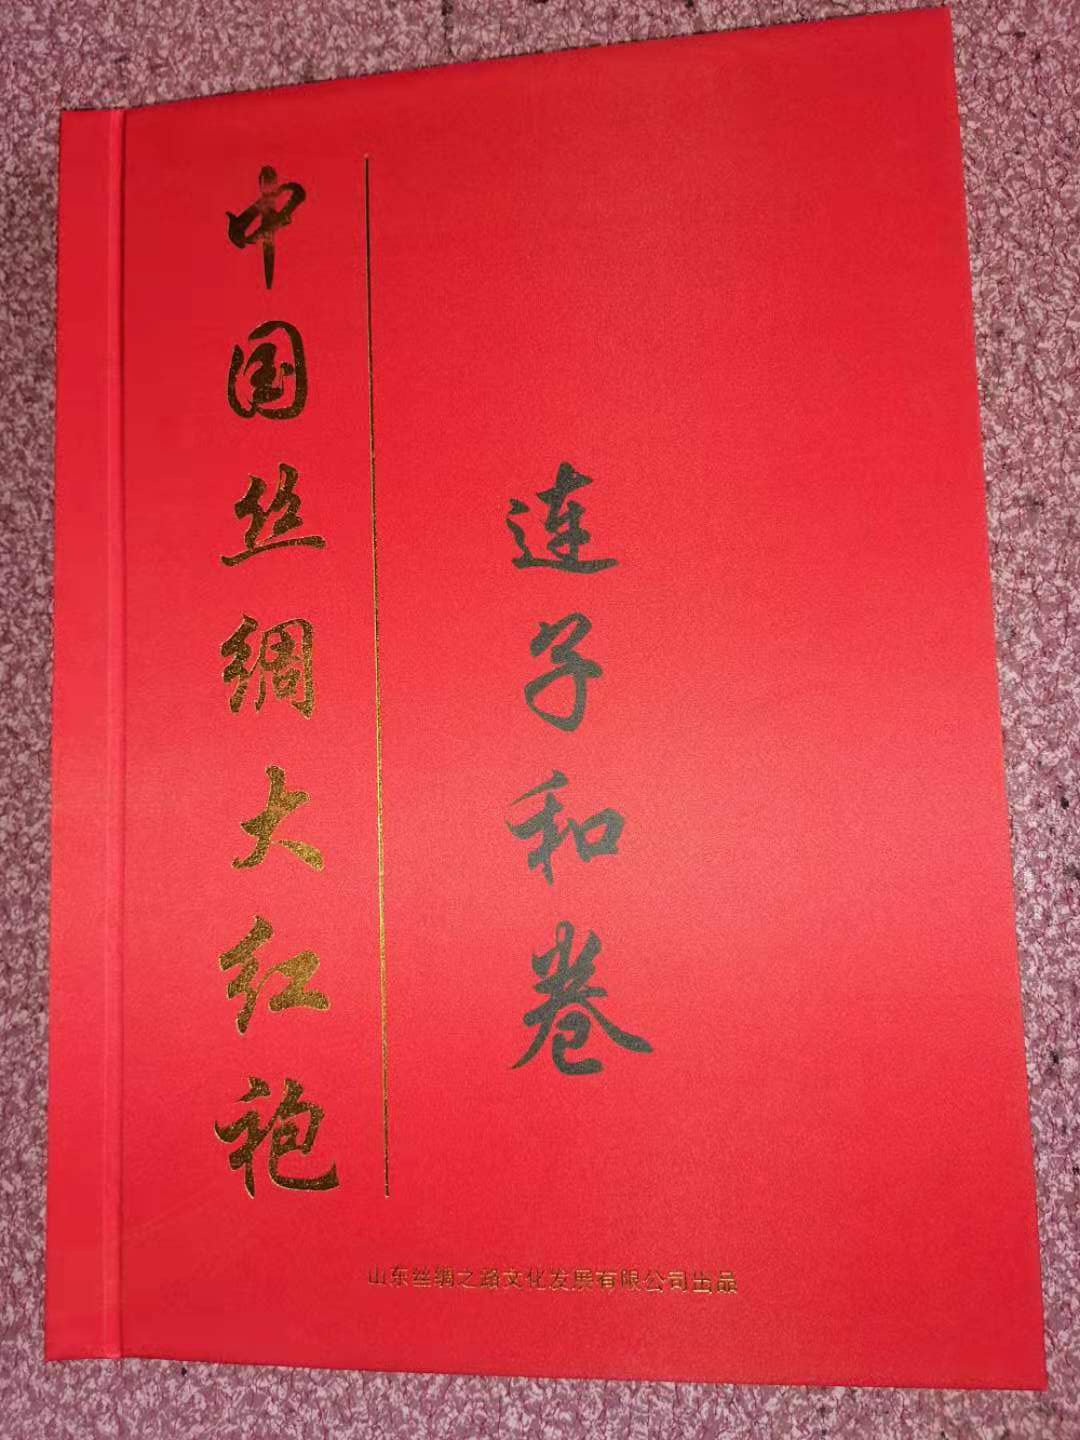 中国丝绸大红袍
连子和卷
山东丝绸之路文化发展有限公司出品